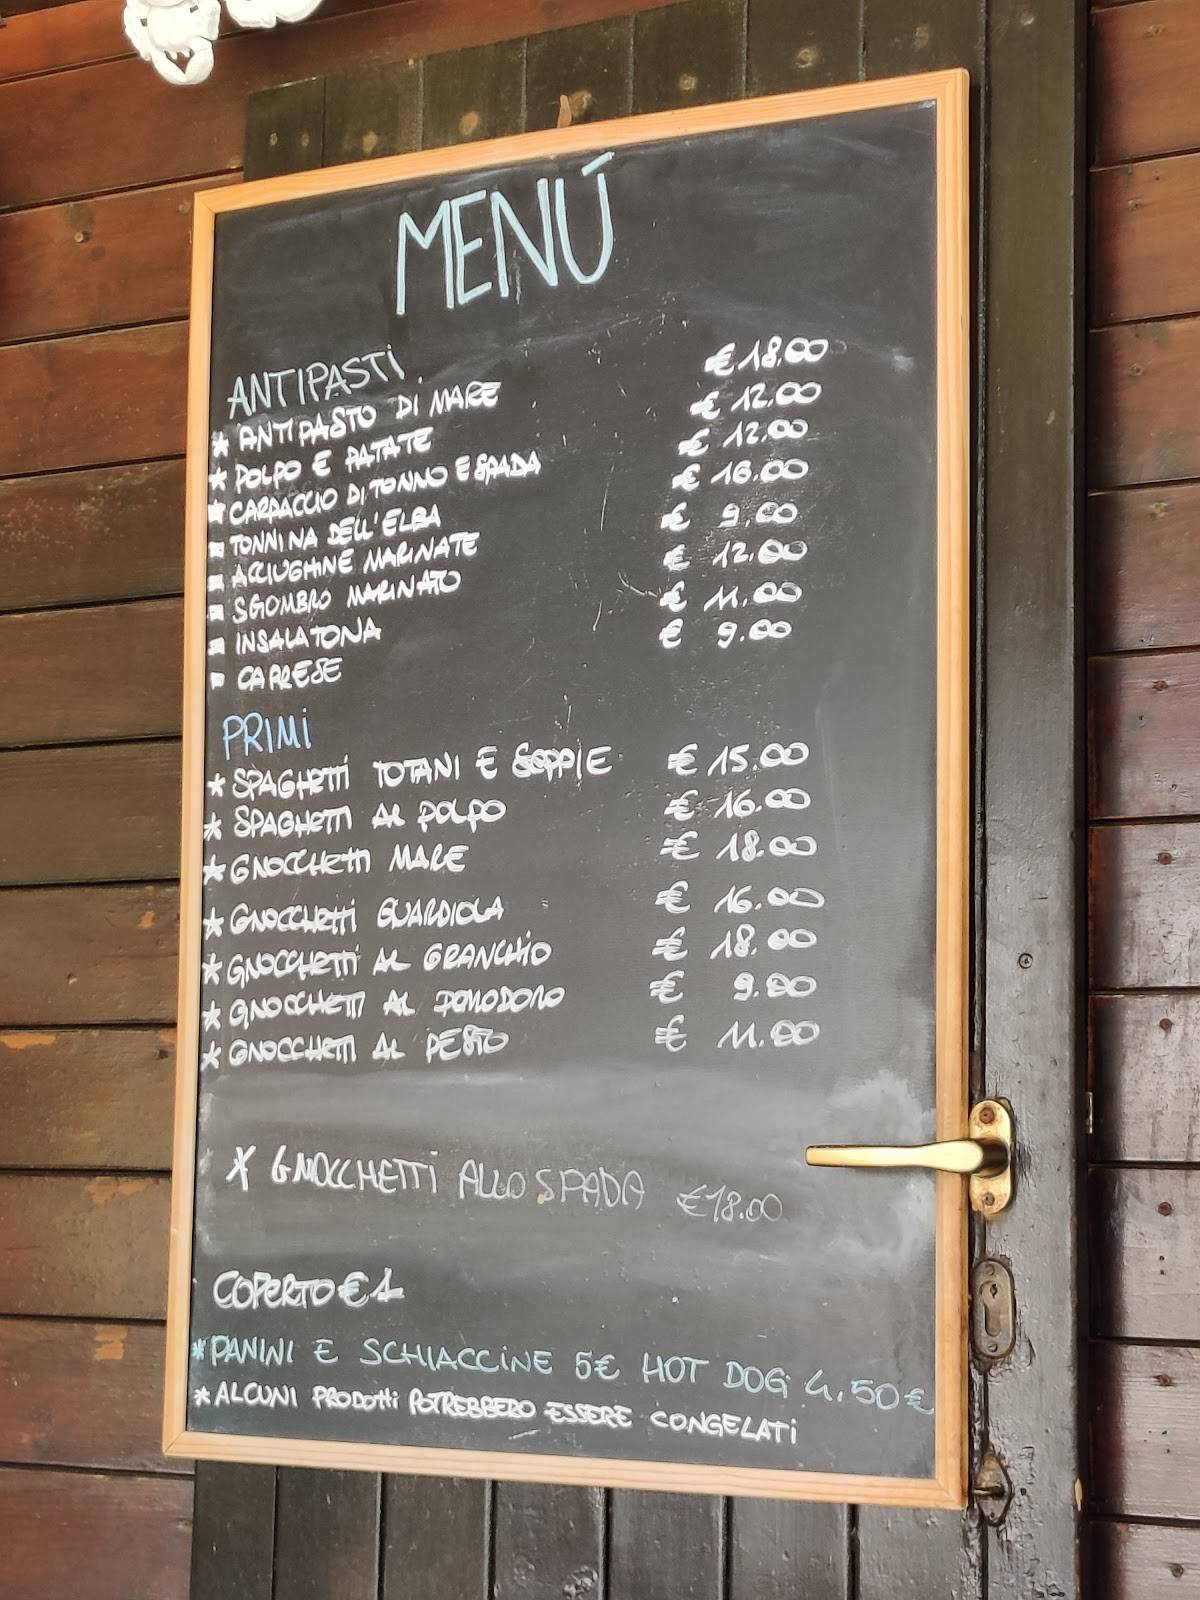 MENÚ
ANTIPASTI
* ANTIPASTO DI MARE € 18.00
* POLPO E PATATE € 12.00
* CARPACCIO DI TONNO E SPADA € 12.00
- TONNINA DELL'ELBA € 16.00
- ACCIUGHINE MARINATE € 9.00
- SGOMBRO MARINATO € 12.00
- INSALATONA € 11.00
- CAPRESE € 9.00
PRIMI
* SPAGHETTI TOTANI E SEPPIE € 15.00
* SPAGHETTI AL POLPO € 16.00
* GNOCCHETTI MARE € 18.00
* GNOCCHETTI GUARDIOLA € 16.00
* GNOCCHETTI AL GRANCHIO € 18.00
* GNOCCHETTI AL POMODORO € 9.00
* GNOCCHETTI AL PESTO € 11.00
* GNOCCHETTI ALLO SPADA €18.00
COPERTO € 1
* PANINI E SCHIACCINE 5€ HOT DOG 4.50€
* ALCUNI PRODOTTI POTREBBERO ESSERE CONGELATI